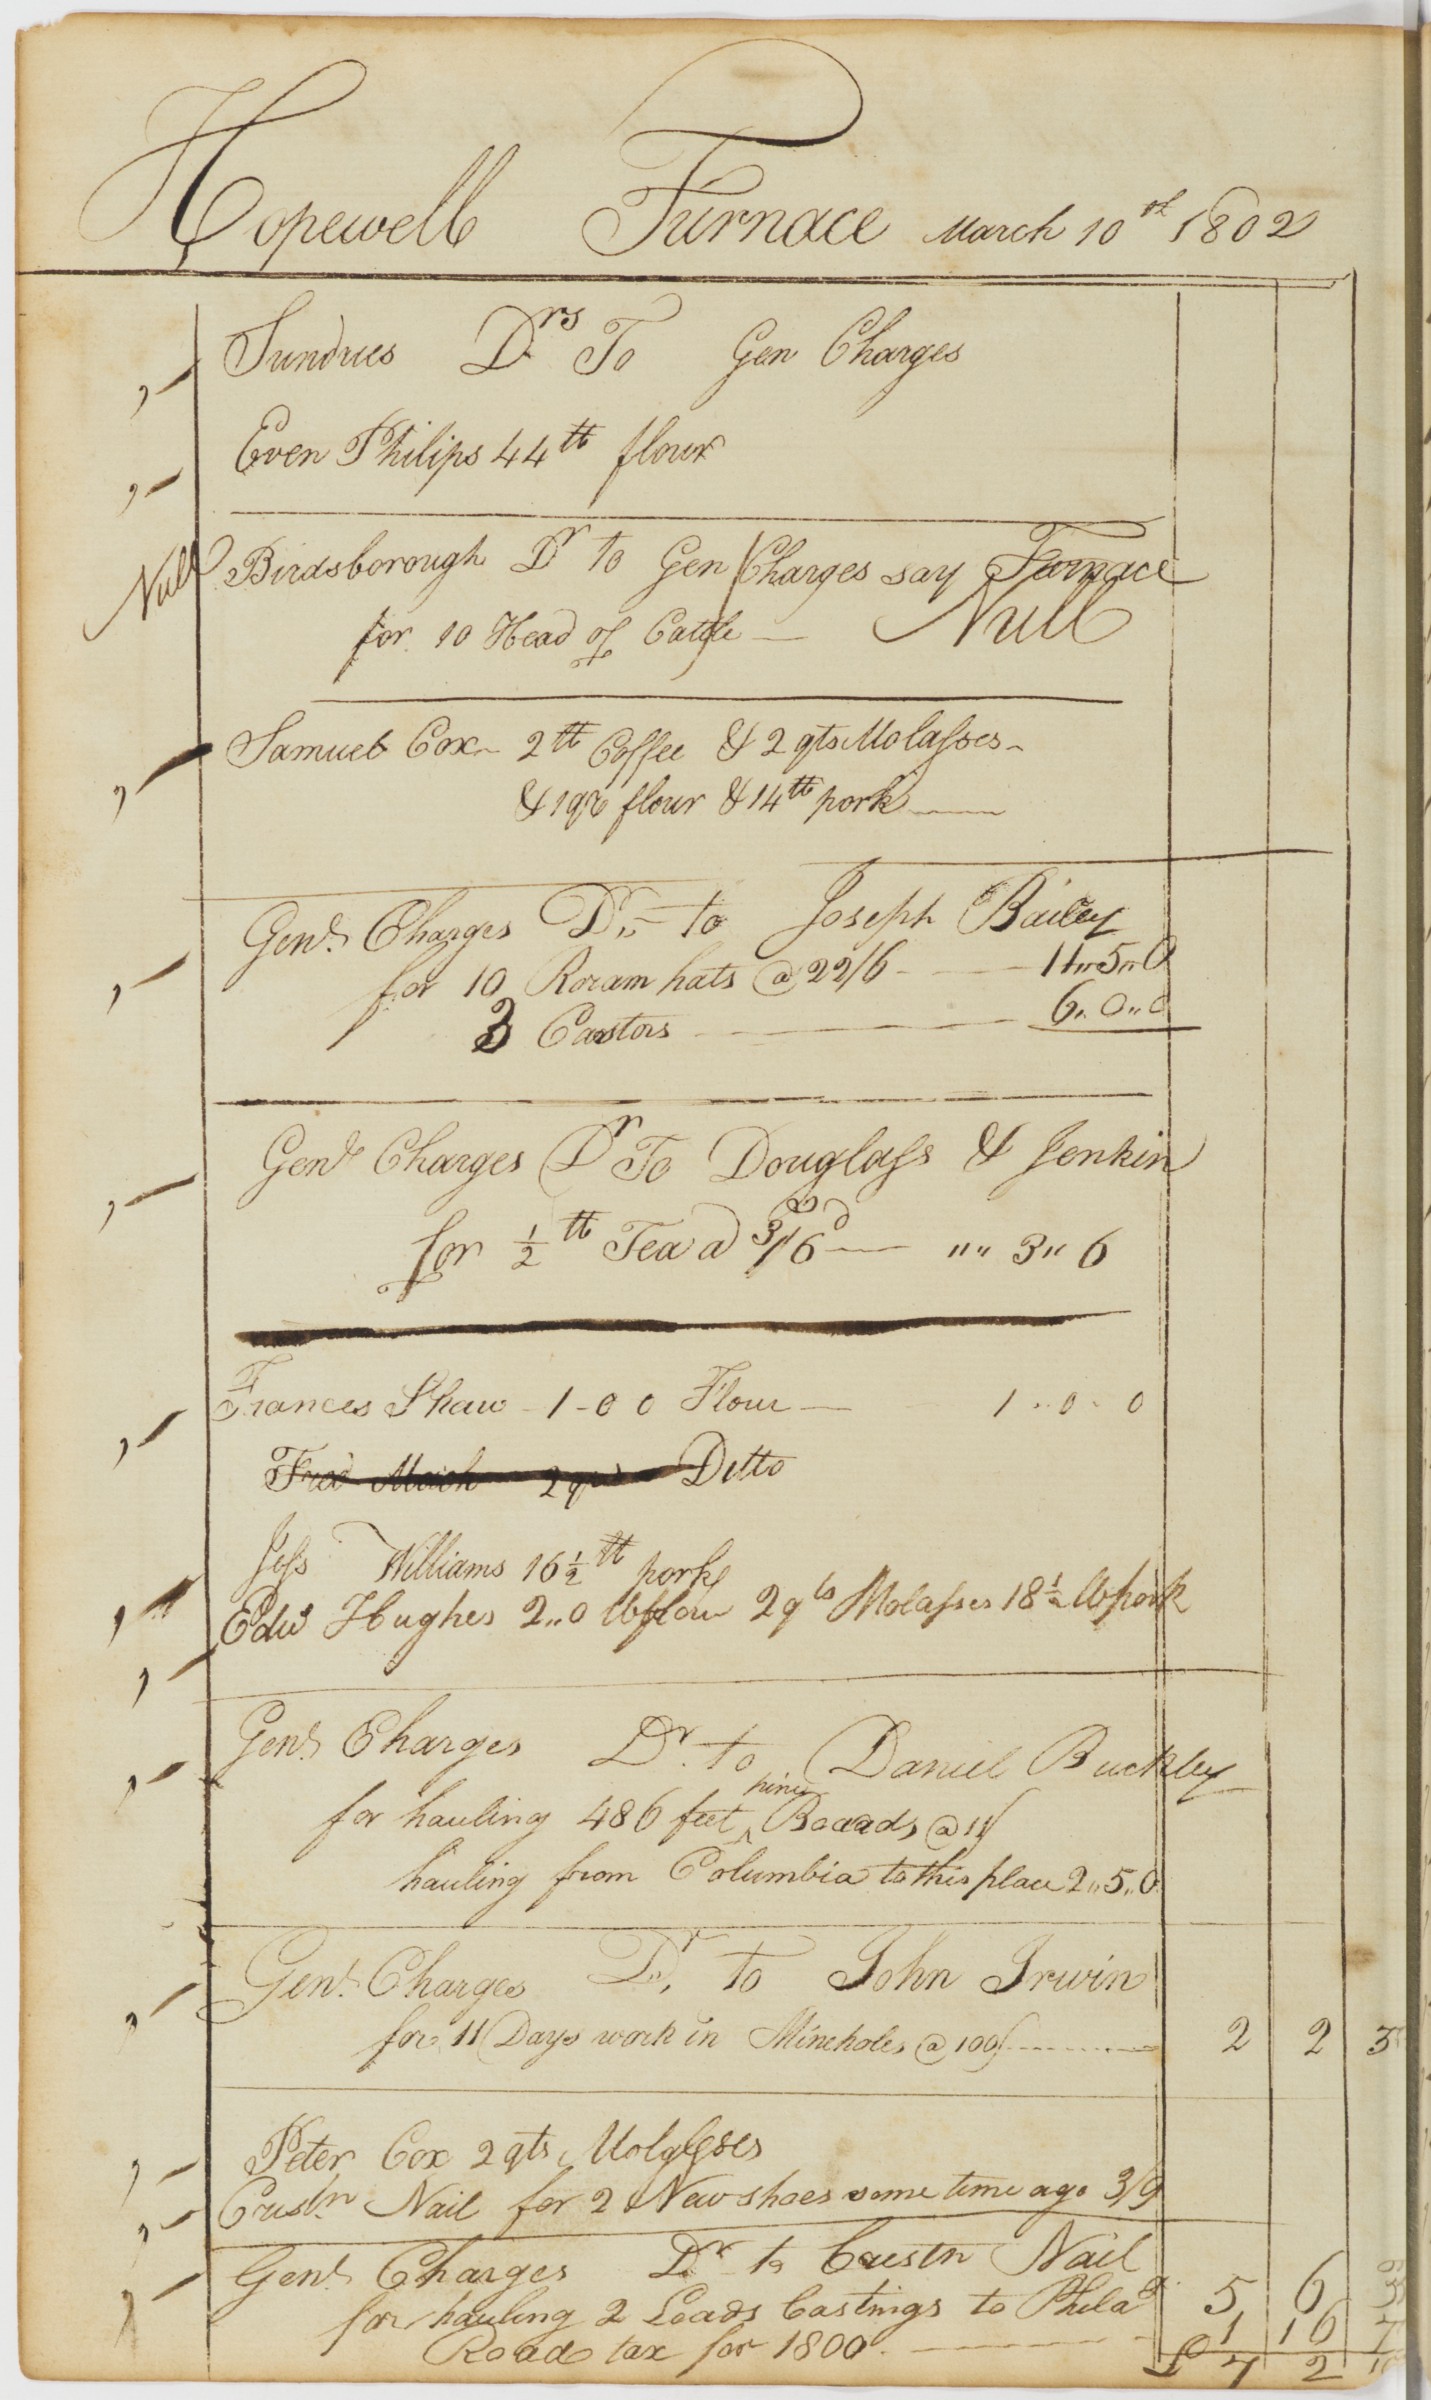 Hopewell Furnace March 10th 1802
Sundries Drs To Gen Charges
Even Philips 44 lb flour
Null Birdsborough Dr to Gen Charges say Furnace
for 10 Head of Cattle — Null
Samuel Cox - 2 lb Coffee & 2 qts Molasses -
& 1 qr flour & 14 lb pork
Genl Charges Dr to Joseph Bailey
for 10 Roram hats @ 22/6 - 11"5"0
3 Castors 6"0"0
Genl Charges Dr To Douglass & Jenkin
for 1/2 lb Tea a 3/6d — "" 3" 6
Frances Shaw - 1-0 0 Flour — 1 - 0 - 0
Ditto
Jess Williams 16 1/2 lb pork
Edwd Hughes 2"0 lb flour 2 qts Molasses 18 1/2 lb pork
Genl Charges Dr to Daniel Buckley
for hauling 486 feet pine Boards @ 11/
hauling from Columbia to this place 2"5"0
Genl Charges Dr to John Irwin
for 11 Days work in Mineholes @ 100/ 2 2 3
Peter Cox 2 qts Molasses
Cristn Nail for 2 New shoes some time ago 3/9
Genl Charges Dr to Cristn Nail
for hauling 2 Loads Castings to Philada 5 6 3
Road tax for 1800 1 16 7
£ 7 2